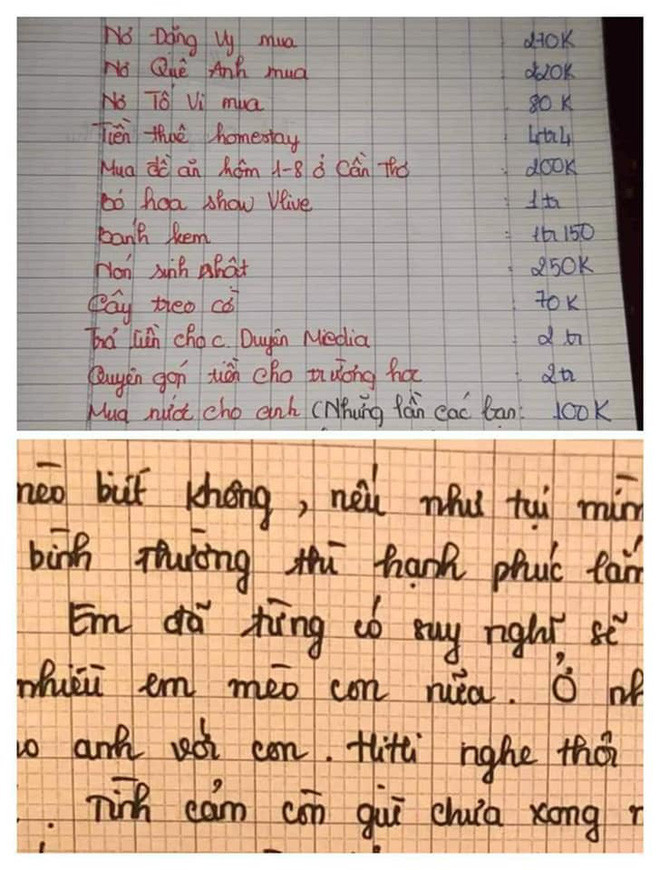 Nợ Đặng Vy mua : 270K
Nợ Quế Anh mua : 220K
Nợ Tố Vi mua : 80K
Tiền thuê homestay : 4tr4
Mua đồ ăn hôm 1-8 ở Cần Thơ : 200K
bó hoa show Vlive : 1tr
bánh kem : 1tr150
Nón sinh nhật : 250K
Cây treo cờ : 70K
Trả tiền cho c. Duyên Media : 2tr
Quyên góp tiền cho trường học : 2tr
Mua nước cho anh (Những lần các bạn : 100K
mèo biết không, nếu như tụi mìn
bình thường thì hạnh phúc lắm
Em đã từng có suy nghĩ sẽ
nhiều em mèo con nữa. Ở nh
o anh với con. Hihi nghe thôi
Tình cảm còn gùi chưa xong